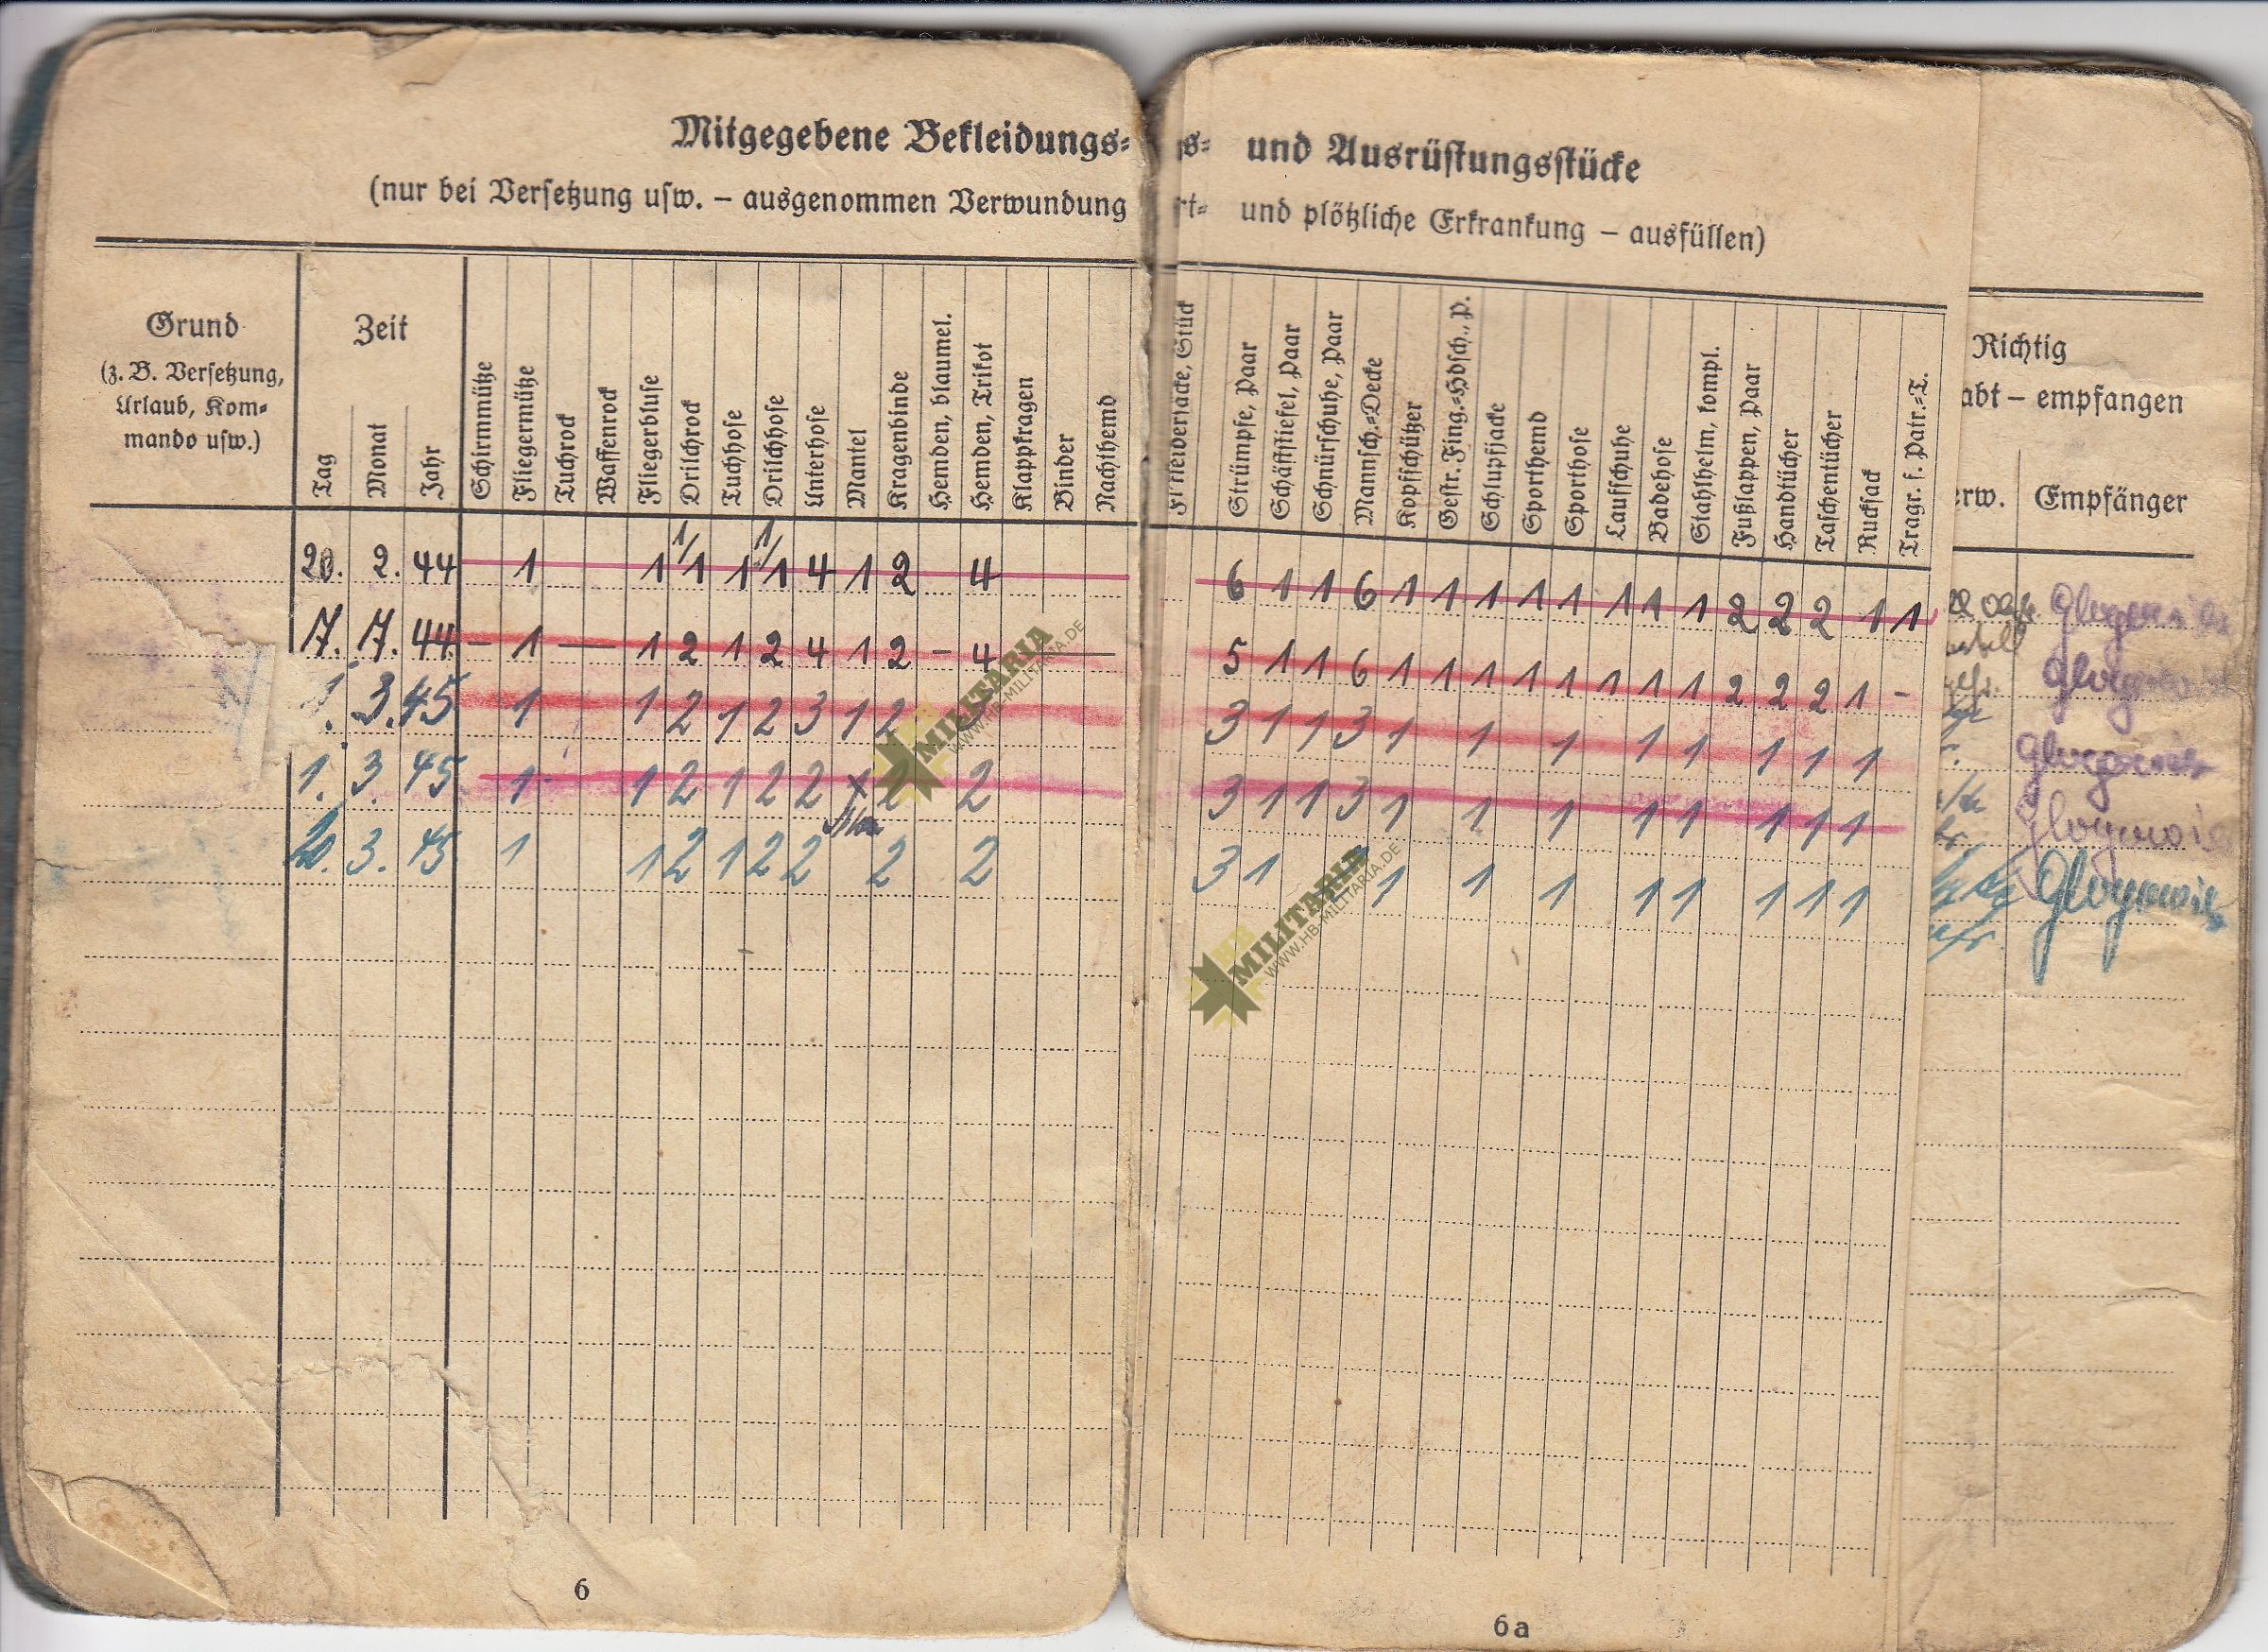 Mitgegebene Bekleidungs= s= und Ausrüstungsstücke
(nur bei Versetzung usw. – ausgenommen Verwundung rt= und plötzliche Erkrankung – ausfüllen)
Grund
(z. B. Versetzung,
Urlaub, Kom=
mando usw.)
Zeit
Tag
Monat
Jahr
Schirmmütze
Fliegermütze
Tuchrock
Waffenrock
Fliegerbluse
Drilchrock
Tuchhose
Drilchhose
Unterhose
Mantel
Kragenbinde
Hemden, blaumel.
Hemden, Trikot
Klappkragen
Binder
Nachthemd
Stück
Strümpfe, Paar
Schäftstiefel, Paar
Schnürschuhe, Paar
Mannsch.=Decke
Kopfschützer
Gestr. Fing.=Hdsch., P.
Schlupfjacke
Sporthemd
Sporthose
Laufschuhe
Badehose
Stahlhelm, kompl.
Fußlappen, Paar
Handtücher
Taschentücher
Rucksack
Tragr. f. Patr.=T.
Richtig
abt – empfangen
erw.
Empfänger
20. 2. 44 1 1 1/1 1 1/1 4 1 2 4 6 1 1 6 1 1 1 1 1 1 1 1 2 2 2 1 1
17. 7. 44 – 1 — 1 2 1 2 4 1 2 – 4 — 5 1 1 6 1 1 1 1 1 1 1 1 2 2 2 1 –
1. 3. 45 1 1 2 1 2 3 1 2 3 1 1 3 1 1 1 1 1 1 1 1
1. 3. 45 1 1 2 1 2 2 2 2 3 1 1 3 1 1 1 1 1 1 1 1
3. 45 1 1 2 1 2 2 2 2 3 1 1 1 1 1 1 1 1 1
HB
MILITARIA
WWW.HB-MILITARIA.DE
HB
MILITARIA
WWW.HB-MILITARIA.DE
6
6a